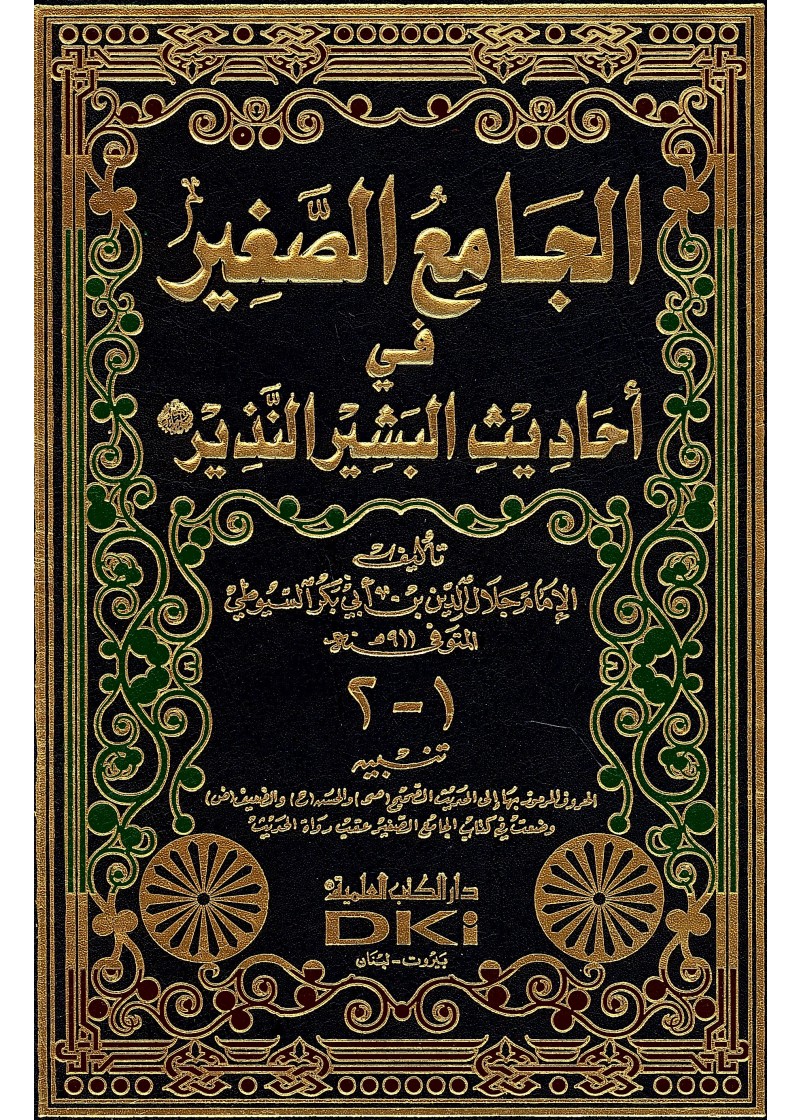 الجَامِعُ الصَّغِير
في
أحَادِيْثِ البَشِيْر النَّذِيْر ﷺ
تأليف
الإمَام جَلَال الدِّين بن أَبي بَكر السّيُوطي
المتوفى ٩١١ هـ
١ - ٢
تنبيه
الحروف المرموز بها إلى الحديث الصحيح (صح) والحسن (ح) والضعيف (ض)
وضعت في كتاب الجامع الصغير عقب رواة الحديث
دار الكتب العلمية
DKi
بيروت - لبنان